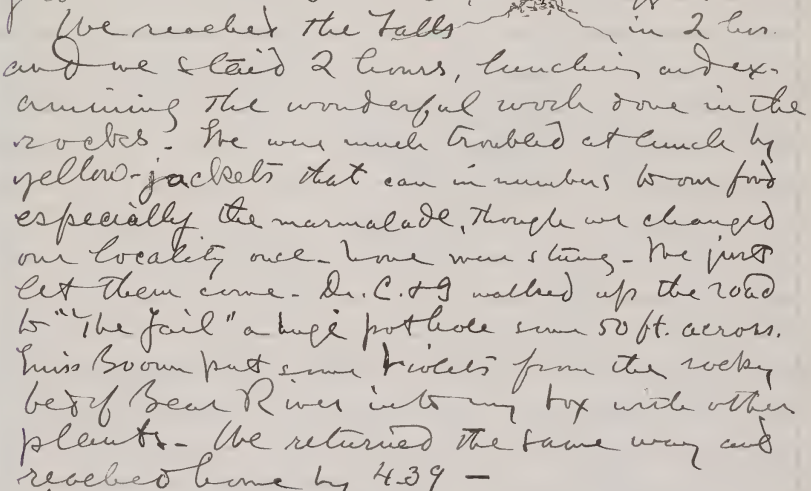 We reached the Falls in 2 hrs.
and we staid 2 hours, lunching and ex-
amining the wonderful work done in the
rocks. We were much troubled at lunch by
yellow-jackets that came in numbers to our food
especially the marmalade, though we changed
our locality once - none were stung - We just
let them come - Dr. C. & I walked up the road
to "The Jail" a huge pothole some 50 ft. across.
Miss Boorn put some violets from the rocky
bed of Bear River into my box with other
plants - We returned the same way and
reached home by 4.39 —